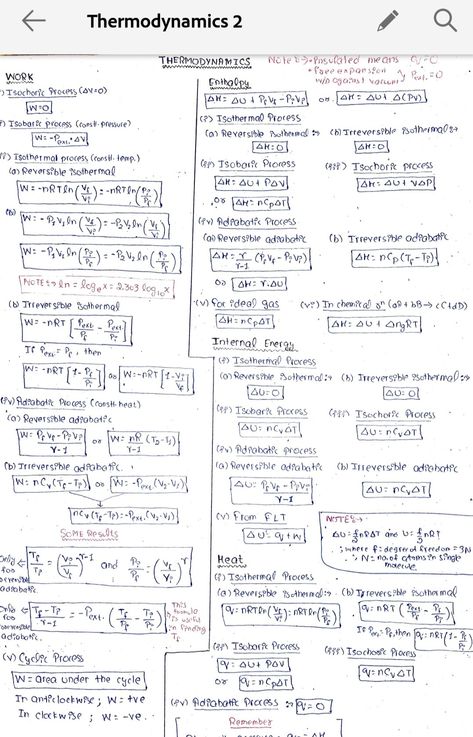 Thermodynamics 2
THERMODYNAMICS
Note :→ • Insulated means q=0
• Free expansion ⇒ Pext.=0
WORK
(i) Isochoric Process (ΔV=0)
W=0
(ii) Isobaric process (const. pressure)
W=-Pext.·ΔV
(iii) Isothermal process (const. temp.)
(a) Reversible isothermal
W=-nRT ln(Vf/Vi)=-nRT ln(Pi/Pf)
(b)
W=-PiVi ln(Vf/Vi)=-PfVf ln(Vf/Vi)
NOTE:→ ln = logₑx = 2.303 log₁₀x
(b) Irreversible isothermal
W=-nRT[Pext/Pf - Pext/Pi]
If Pext=Pf, then
W=-nRT[1-Pf/Pi] or W=-nRT[1-Vi/Vf]
(iv) Adiabatic Process (const. heat)
(a) Reversible adiabatic
W=PfVf-PiVi/γ-1 or W=nR/γ-1 (T2-T1)
(b) Irreversible adiabatic.
W=nCv(Tf-Ti) or W=-Pext.(V2-V1)
nCv(Tf-Ti)=-Pext.(V2-V1)
SOME Results
Only for reversible adiabatic.
Tf/Ti=(Vi/Vf)^γ-1 and Pf/Pi=(Vi/Vf)^γ
Only for irreversible adiabatic.
Tf-Ti/γ-1=-Pext.(Tf/Pf-Ti/Pi)
This formula is useful in finding Tf
(v) Cyclic Process
W=area under the cycle
In anticlockwise; W=+ve
In clockwise; W=-ve.
Enthalpy
ΔH=ΔU+PfVf-PiVi or ΔH=ΔU+Δ(PV)
(i) Isothermal Process
(a) Reversible isothermal:→ (b) Irreversible isothermal:→
ΔH=0 ΔH=0
(ii) Isobaric Process (iii) Isochoric process
ΔH=ΔU+PΔV ΔH=ΔU+VΔP
or ΔH=nCpΔT
(iv) Adiabatic Process
(a) Reversible adiabatic (b) Irreversible adiabatic
ΔH=γ/γ-1 (PfVf-PiVi) ΔH=nCp(Tf-Ti)
or ΔH=γ.ΔU
(v) for ideal gas (vi) In chemical (aA+bB→cC+dD)
ΔH=nCpΔT ΔH=ΔU+ΔngRT
Internal Energy
(i) Isothermal Process
(a) Reversible isothermal:→ (b) Irreversible isothermal:→
ΔU=0 ΔU=0
(ii) Isobaric Process (iii) Isochoric Process
ΔU=nCvΔT ΔU=nCvΔT
(iv) Adiabatic process
(a) Reversible adiabatic (b) Irreversible adiabatic
ΔU=PfVf-PiVi/γ-1 ΔU=nCvΔT
(v) From FLT
ΔU=q+w
NOTE:→
ΔU=f/2nRΔT and U=f/2nRT
; where f: degree of freedom = 3N
; N=no. of atoms in single molecule.
Heat
(i) Isothermal Process
(a) Reversible isothermal:→ (b) Irreversible isothermal
q=nRT ln(Vf/Vi)=nRT ln(Pi/Pf) q=nRT(Pext/Pf-Pext/Pi)
If Pext=Pf, then q=nRT(1-Pf/Pi)
(ii) Isobaric Process (iii) Isochoric Process
q=ΔU+PΔV q=nCvΔT
or q=nCpΔT
(iv) Adiabatic Process:→ q=0
Remember